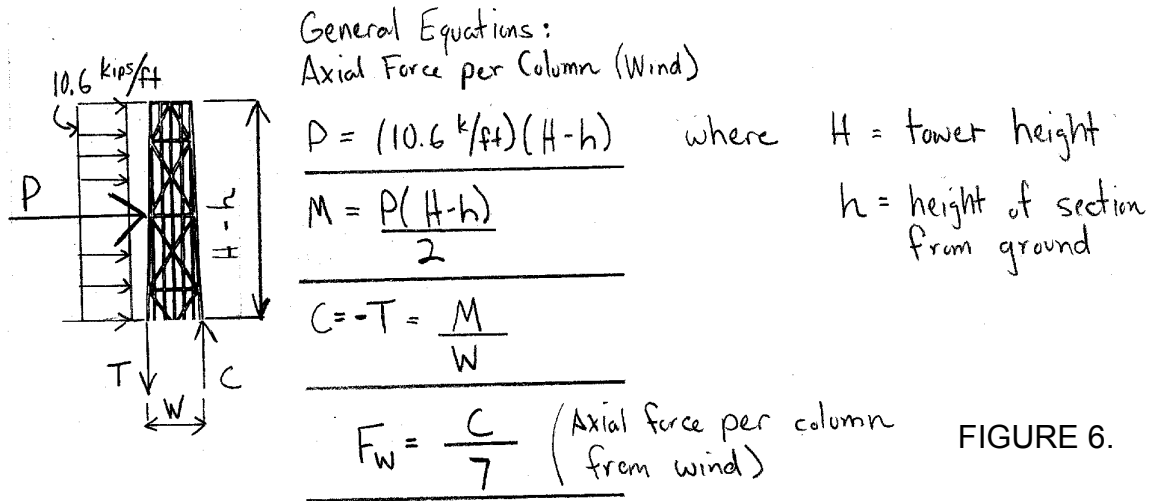 General Equations:
Axial Force per Column (Wind)
10.6 kips/ft
P
H-h
T
C
W
P = (10.6 k/ft)(H-h)
where H = tower height
h = height of section
from ground
M = P(H-h)
2
C=-T = M
W
Fw = C
7
(Axial force per column
from wind)
FIGURE 6.